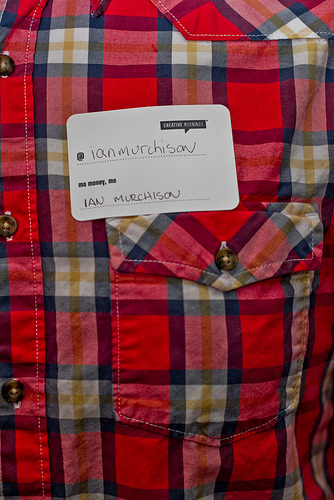 CREATIVE MORNINGS
@ ianmurchison
mo money, mo
IAN MURCHISON